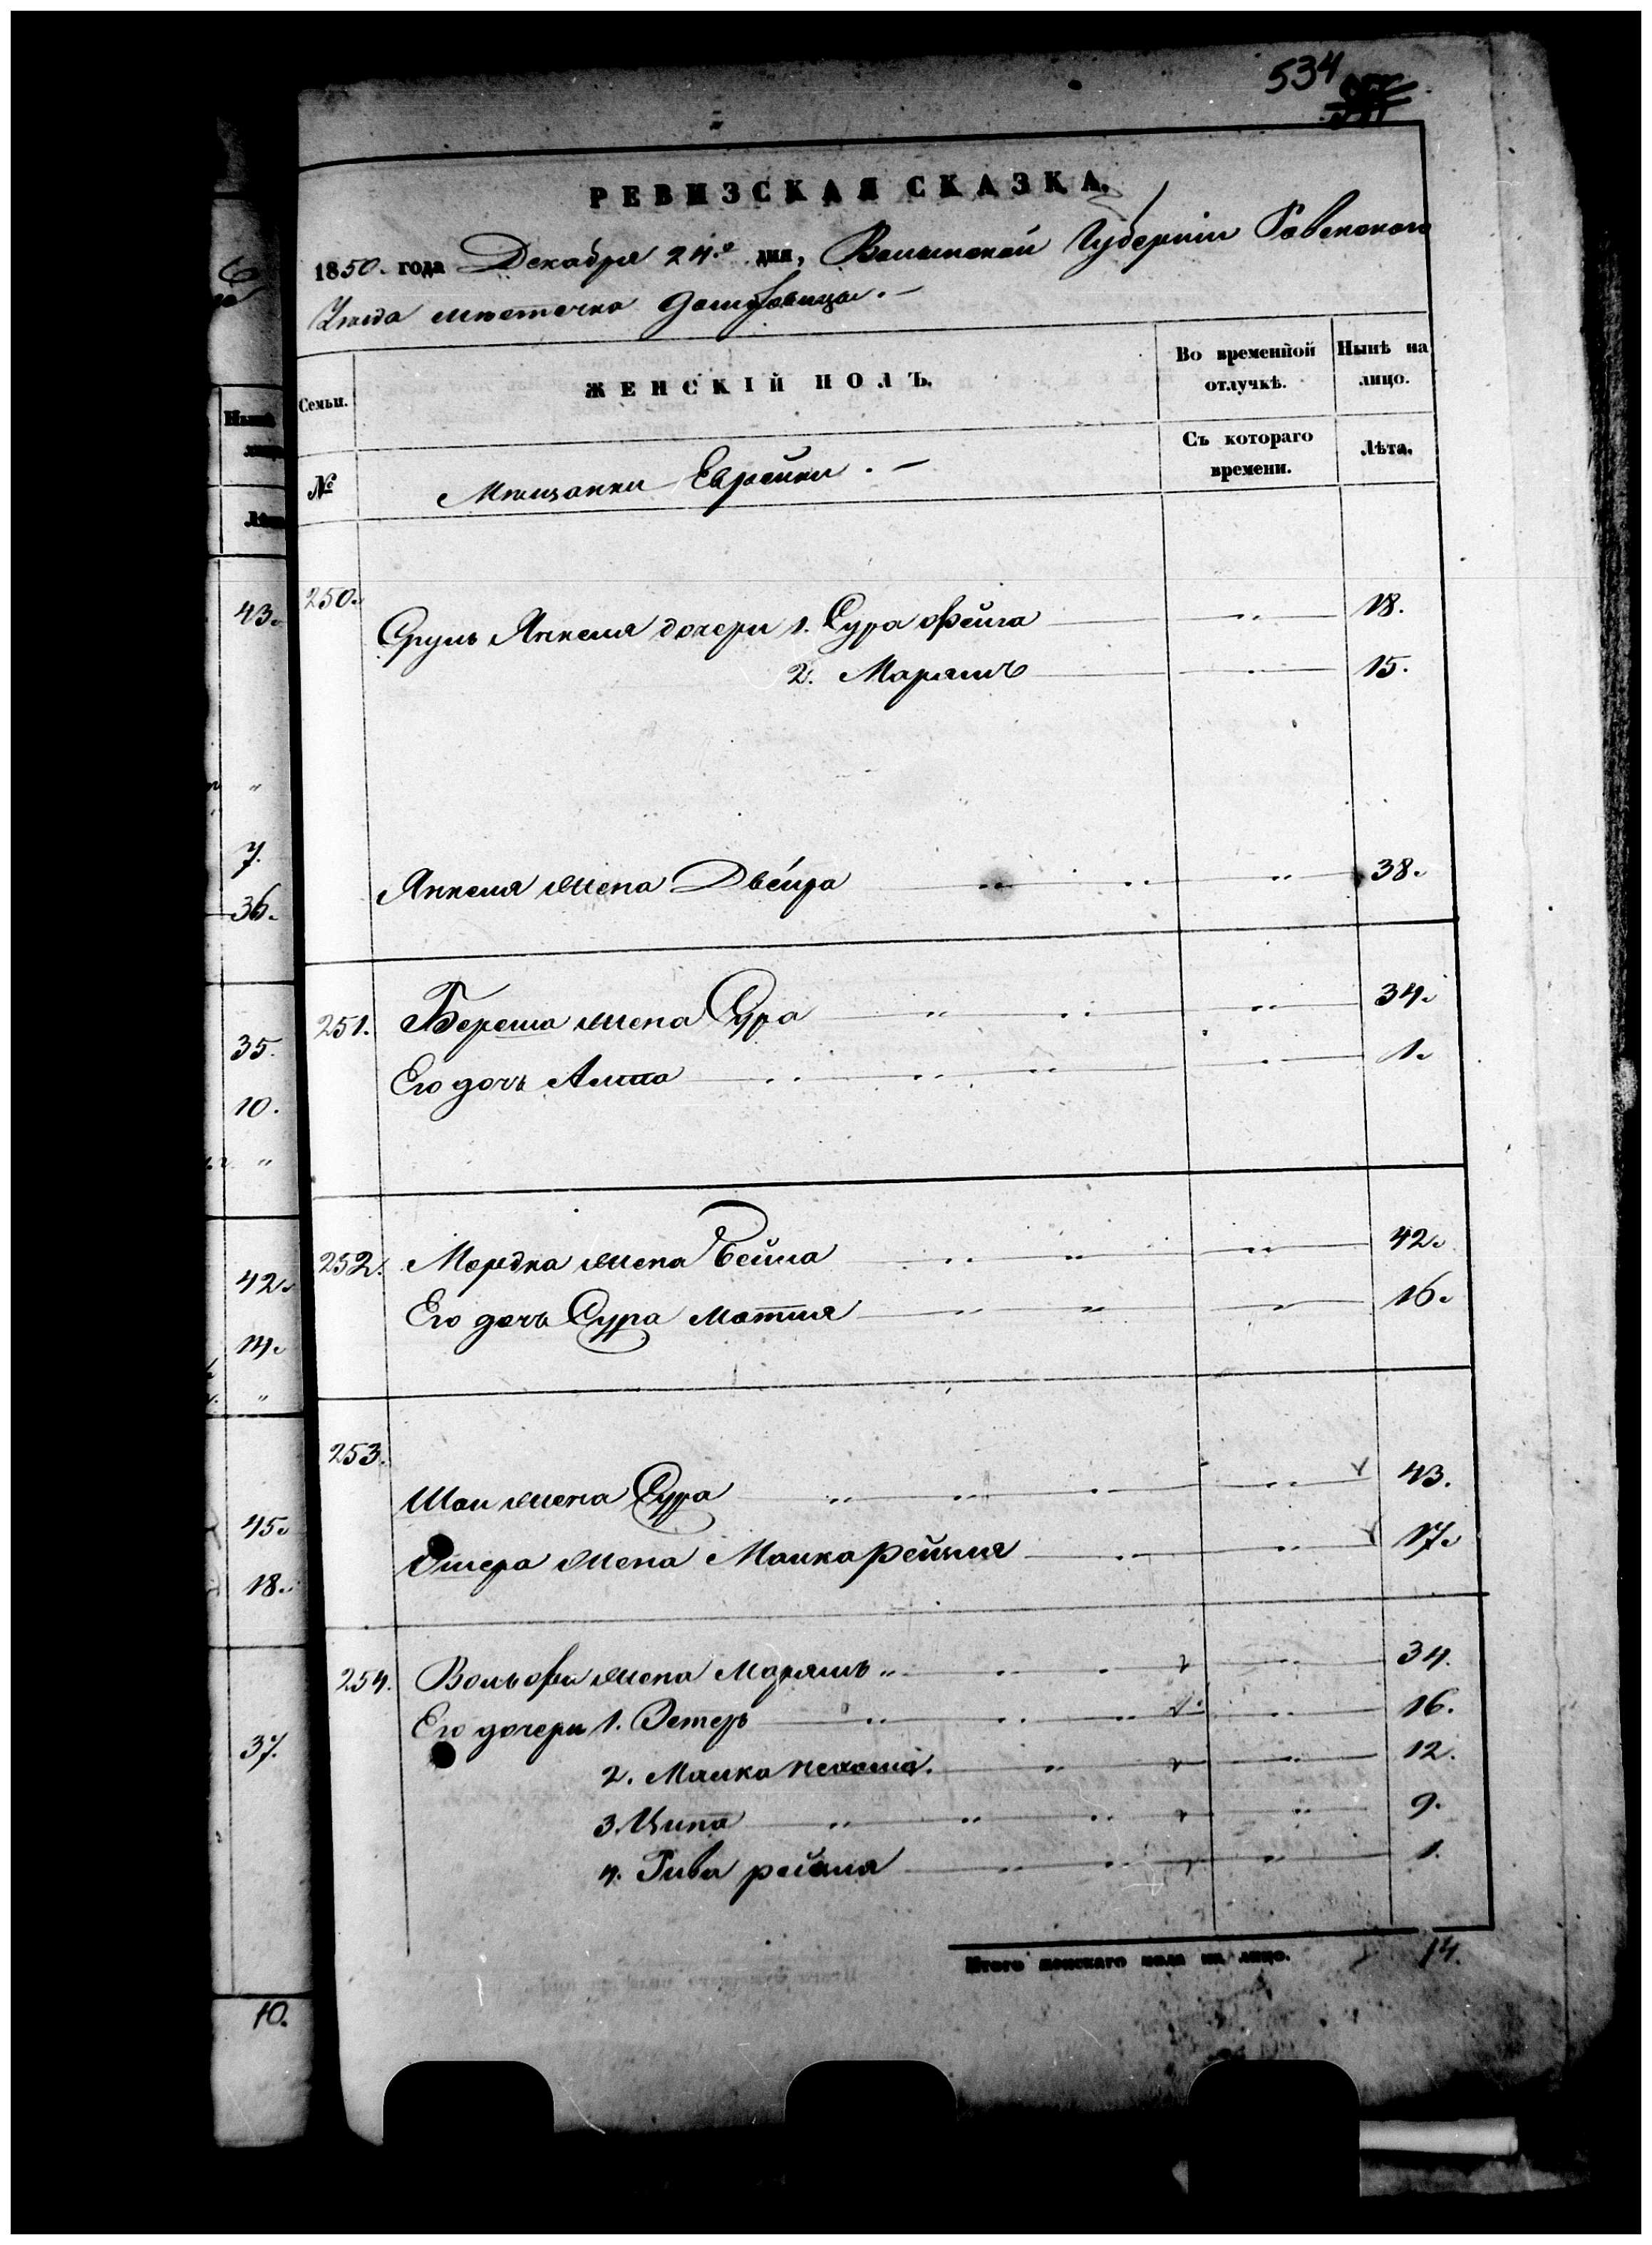 534
РЕВИЗСКАЯ СКАЗКА.
1850. года Декабря 24.го дня, Волынской Губерніи Ровенского
Уѣзда мѣстечка Домбровицы. —
Семьи. ЖЕНСКІЙ ПОЛЪ. Во временной отлучкѣ. Нынѣ на лицо.
№ Мѣщанки Еврейки. — Съ котораго времени. Лѣта.
250. Сруль Янкеля дочери 1. Сура Фейга 18.
2. Марямъ 15.
Янкеля жена Двейра 38.
251. Береша жена Сура 34.
Его дочь 1.
252. Мордка жена Бейла 42.
Его дочь Сура Матля 16.
253.
Шаи жена Сура 43.
Ошера жена Малка Рейзля 17.
254. Вольфа жена Марямъ 34.
Его дочери 1. Эстеръ 16.
2. Малка Нехама 12.
3. Ципа 9.
4. Рива рейзля 1.
Итого женскаго пола на лицо. 14.
43.
"
7.
36.
35.
10.
"
42.
14.
"
45.
18.
37.
10.